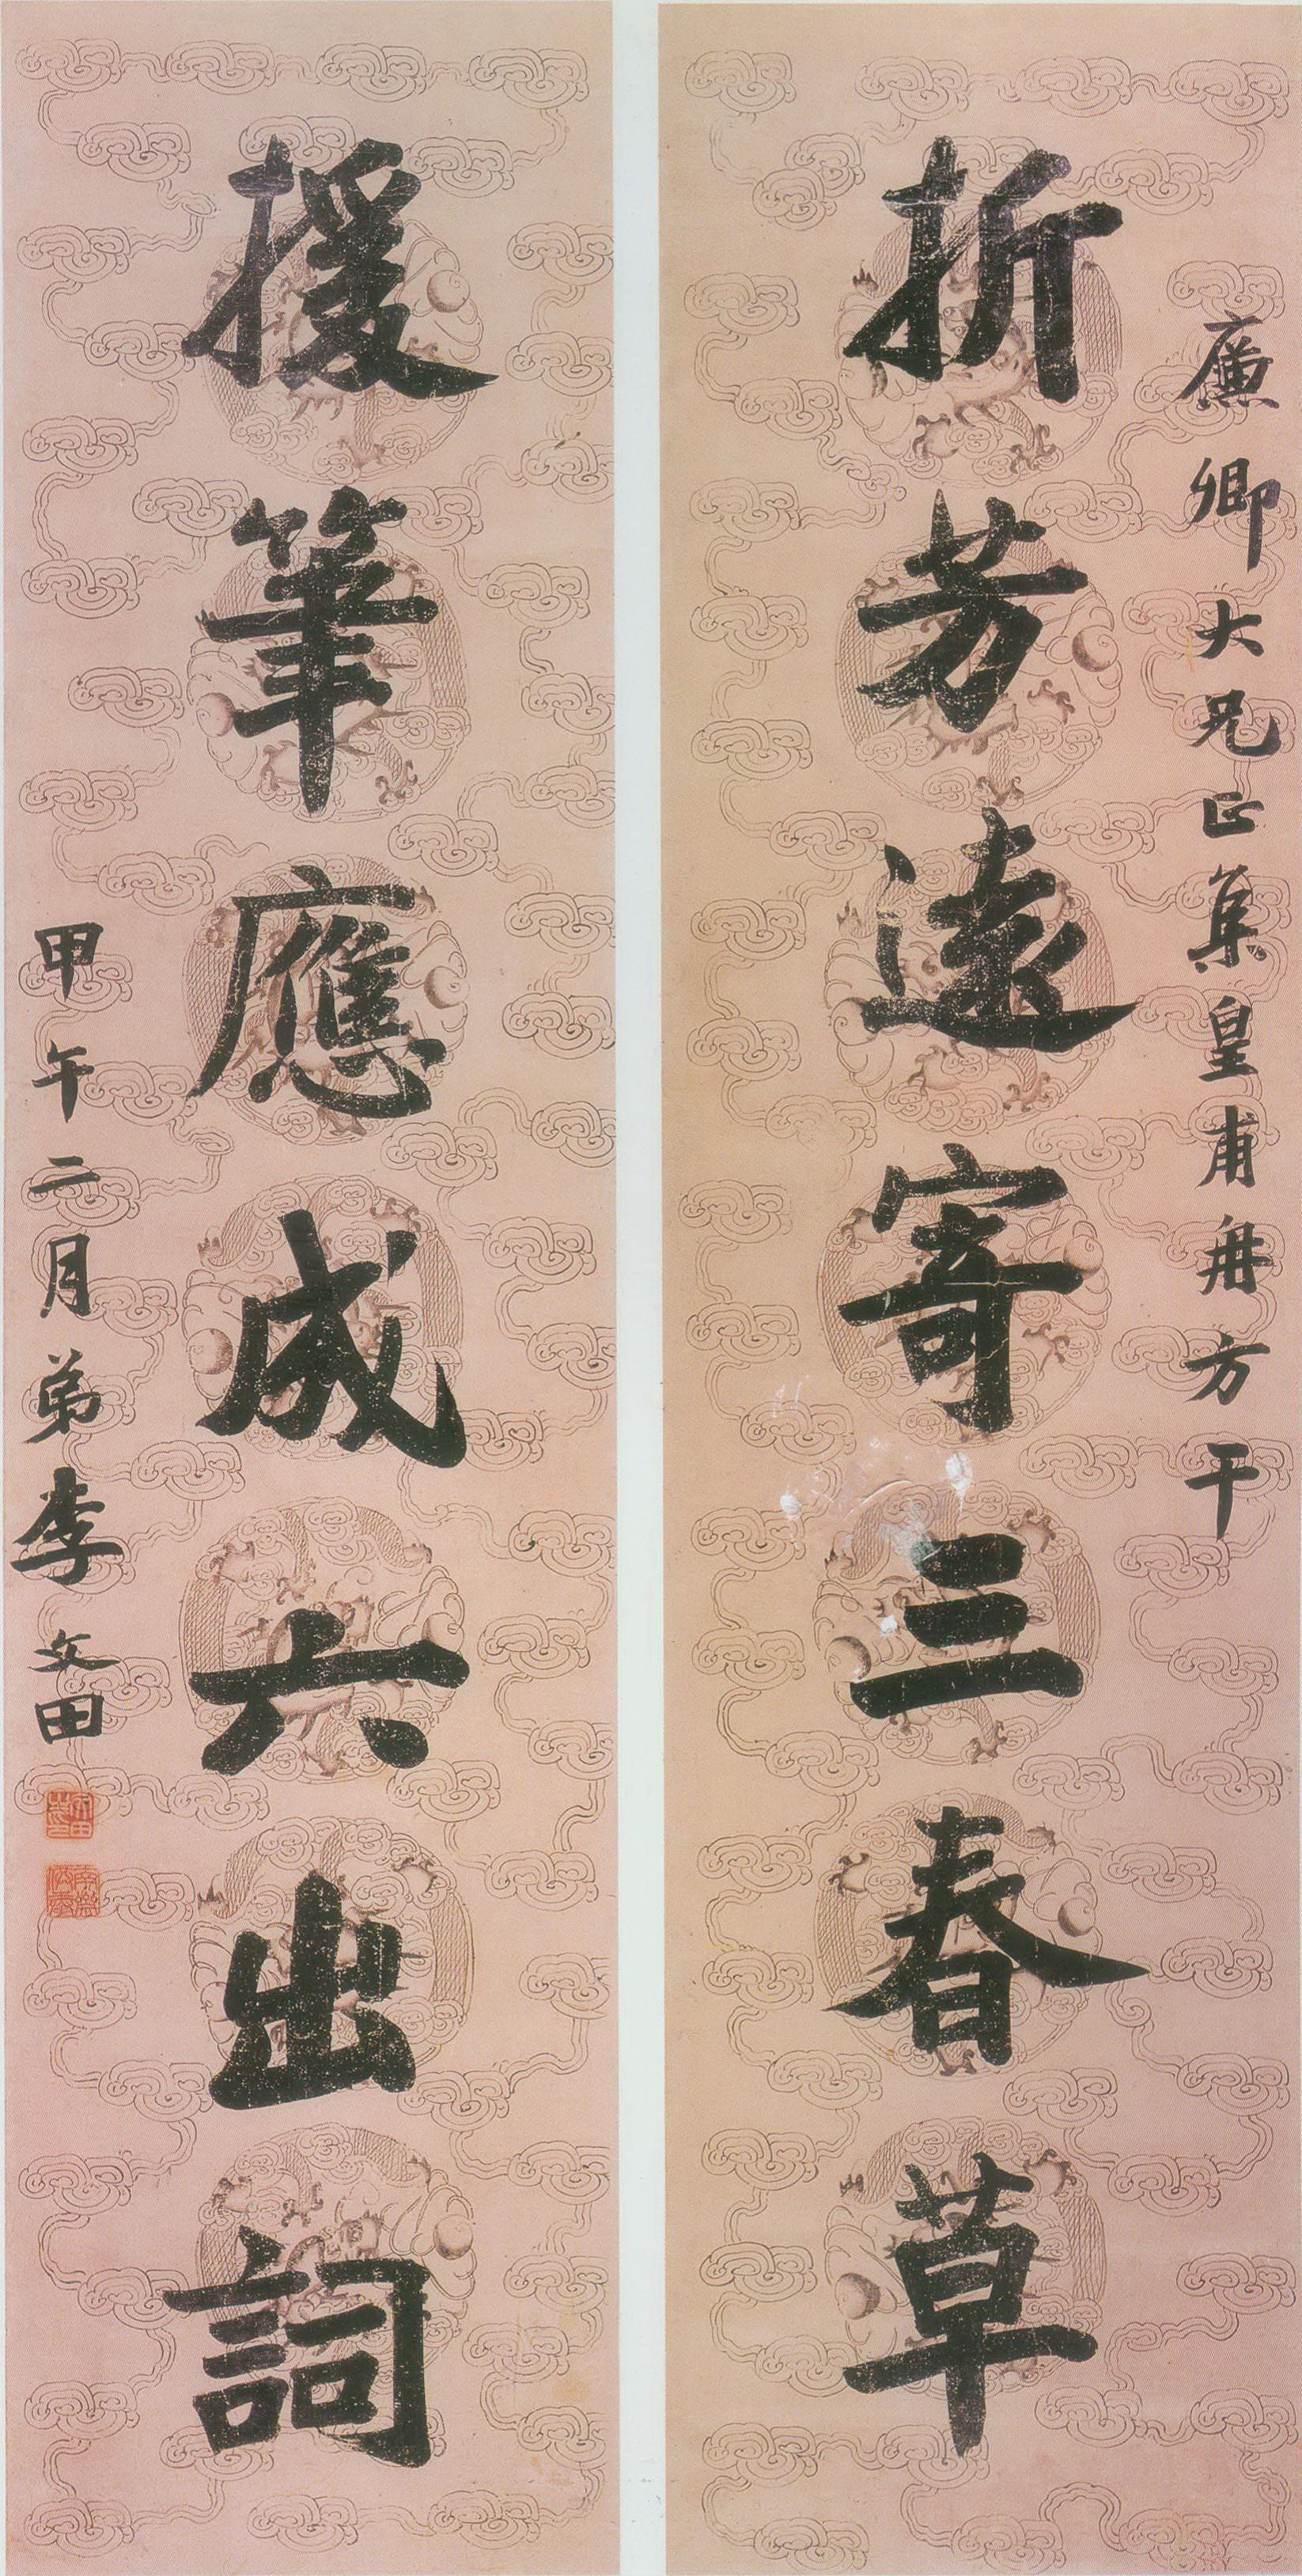 廉卿大兄正集皇甫冉方干
折芳遠寄三春草
援筆應成六出詞
甲午二月弟李文田